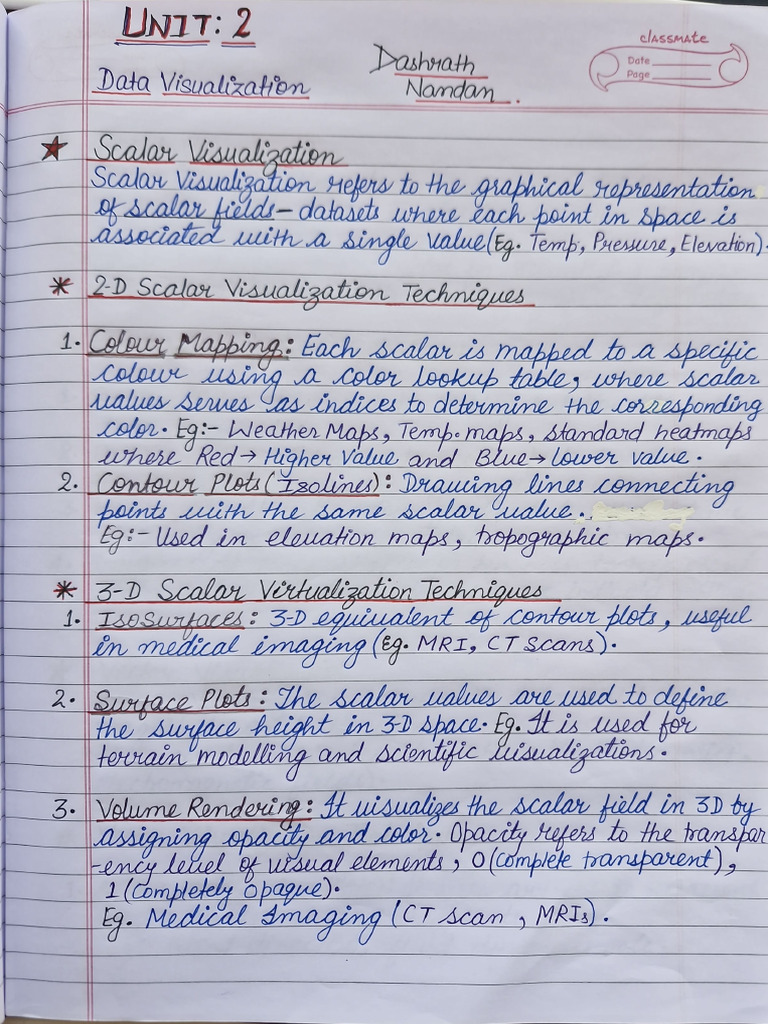 UNIT: 2
Dashrath
Nandan.
Data Visualization
classmate
Date
Page
★ Scalar Visualization
Scalar Visualization refers to the graphical representation
of scalar fields - datasets where each point in space is
associated with a single value (Eg. Temp, Pressure, Elevation).
* 2-D Scalar Visualization Techniques
1. Colour Mapping: Each scalar is mapped to a specific
colour using a color lookup table, where scalar
values serves as indices to determine the corresponding
color. Eg:- Weather Maps, Temp. maps, standard heatmaps
where Red → Higher Value and Blue → lower value.
2. Contour Plots (Isolines): Drawing lines connecting
points with the same scalar value.
Eg:- Used in elevation maps, tropographic maps.
* 3-D Scalar Virtualization Techniques
1. IsoSurfaces: 3-D equivalent of contour plots, useful
in medical imaging (Eg. MRI, CT Scans).
2. Surface Plots: The scalar values are used to define
the surface height in 3-D space. Eg. It is used for
terrain modelling and scientific visualizations.
3. Volume Rendering: It visualizes the scalar field in 3D by
assigning opacity and color. Opacity refers to the transpar
-ency level of visual elements, 0 (complete transparent),
1 (completely opaque).
Eg. Medical Imaging (CT scan, MRIs).